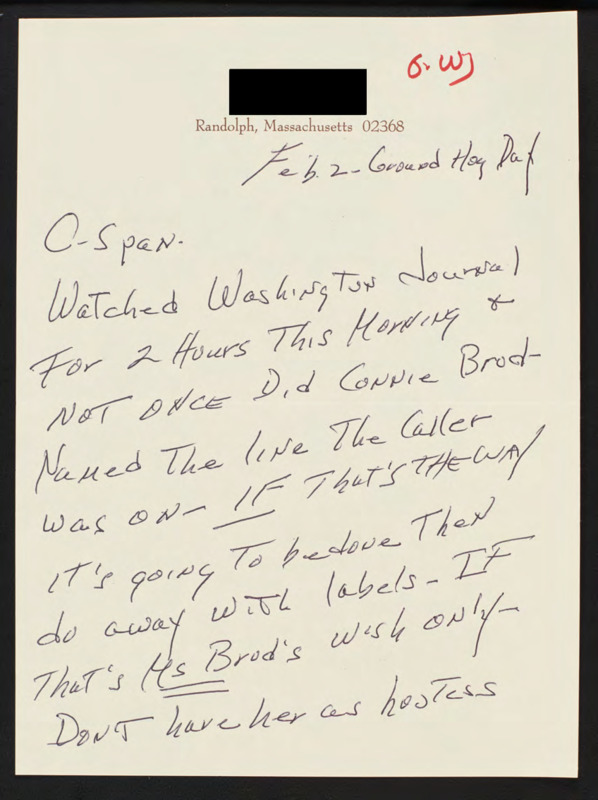 G. W)
Randolph, Massachusetts 02368
Feb. 2 - Ground Hog Day
C-Span.
Watched Washington Journal
For 2 Hours This Morning &
NOT ONCE Did Connie Brod-
Named The line The Caller
was on - IF That's THE WAY
it's going To bedone Then
do away with labels - IF
That's Ms Brod's wish only -
DON'T have her as hostess